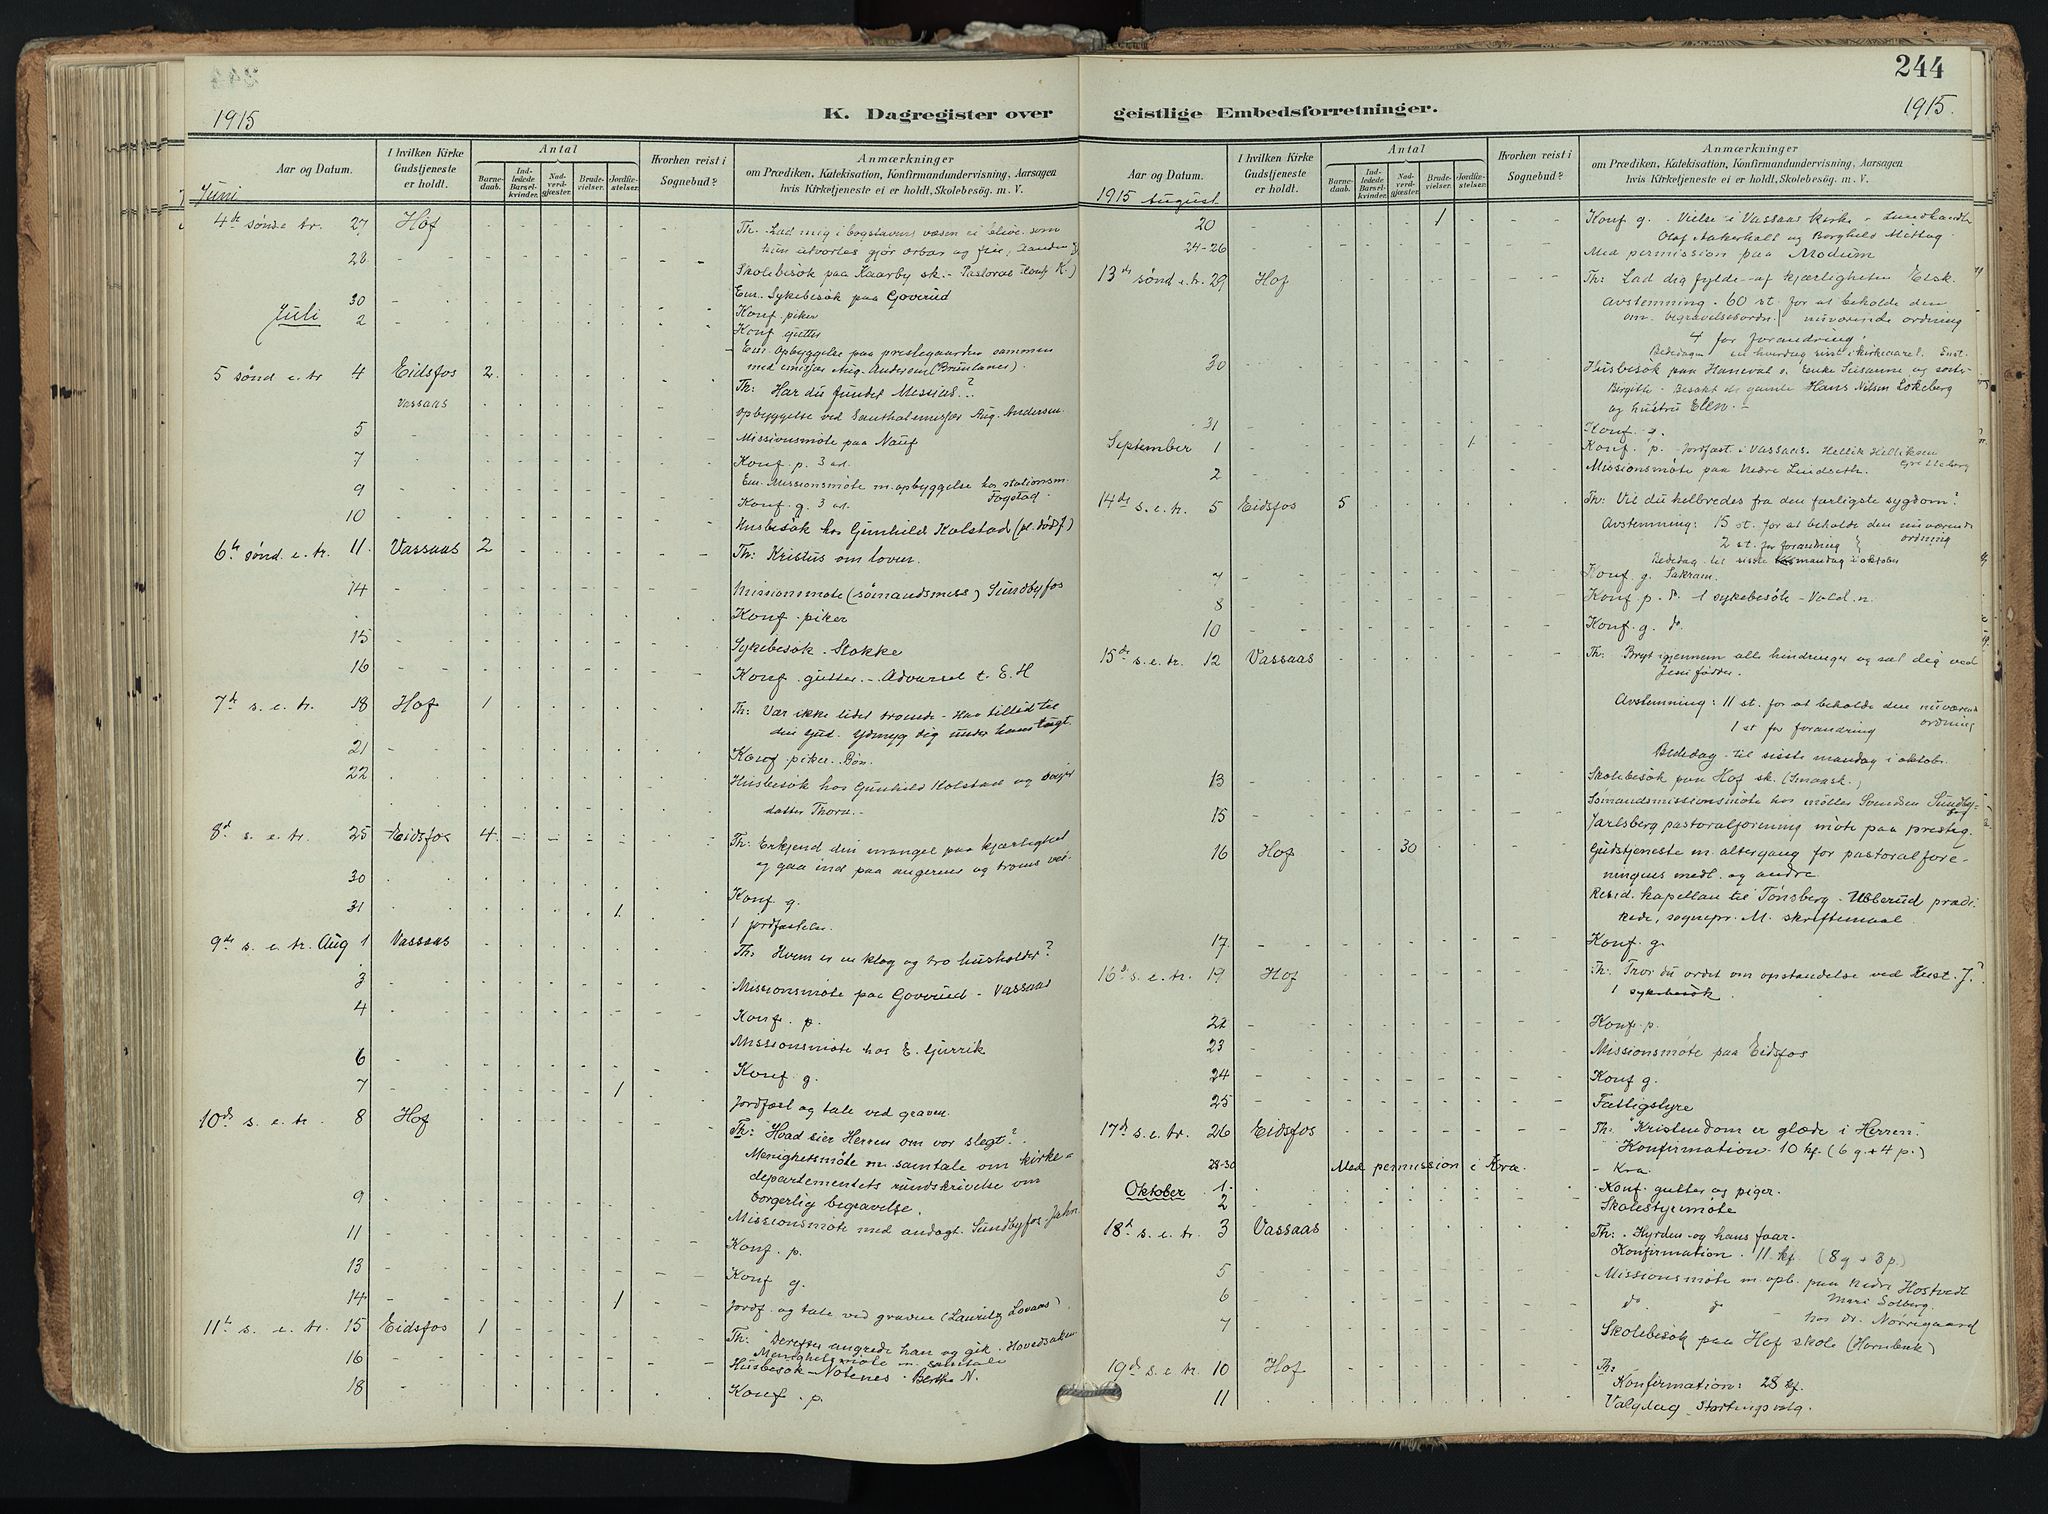 244
1915
K. Dagregister over
geistlige Embedsforretninger.
1915.
Aar og Datum.
I hvilken Kirke Gudstjeneste er holdt.
Antal
Barnedaab.
Indledede Barselkvinder.
Nadverdgjæster.
Brudevielser.
Jordfæstelser.
Hvorhen reist i Sognebud?
Anmærkninger
om Prædiken, Katekisation, Konfirmandundervisning, Aarsagen
hvis Kirketjeneste ei er holdt, Skolebesøg. m. V.
Juni
4de sønd e tr. 27 Hof Th. Lad mig i bogstavens væsen ei blive, som
hun udvortes gjør ærbar og fri,
28 Skolebesøk paa Kaarby sk. - Pastoral Konf K.)
30 Em. Sykebesøk paa Goverud
Juli 2 Konf. piker
Konf. gutter
Em. Opbyggelse paa prestegaarden sammen
med emisær Aug. Andersen
5 sønd e. tr 4 Eidsfos 2. Th: Har du fundet Messias?
Vassaas Opbyggelse ved Santhalemisjær Aug. Andersen.
5 Missionsmøte paa Nauf
7 Konf. p. 3 art.
9 Em. Missionsmøte m. opbyggelse hos stationsm.
Fogstad.
Konf. g. 3 art.
10 Husbesøk hos Gunhild Kolstad
6te sønd. e. tr. 11. Vassaas 2 Th: Kristus om loven.
14 Missionsmøte (sømandsmiss) Sundbyfos
Konf. piker
15 Sykebesøk. Stokke
16 Konf. gutter. - Advarsel t. E. H
7de s. e. tr. 18 Hof 1 Th: Vær ikke lidet troende - Hav tillid til
din Gud. Ydmyg dig under hans tugt.
21 Konf. piker. Bøn.
22 Husbesøk hos Gunhild Kolstad og
datter Thora.
8de s. e. tr. 25 Eidsfos 4. Th: Erkjend din mangel paa kjærlighed
og gaa ind paa angerens og troens vei.
30 Konf g.
31 1. 1 jordfæstelse.
9de s. e. tr. Aug 1 Vassaas Th: Hvem er en klog og tro husholder?
3 Missionsmøte paa Goverud - Vassaas
4 Konf. p.
6 Missionsmøte hos E. Gurrik
7 1 Konf g.
Jordfæst og tale ved graven.
10de s. e. tr. 8 Hof Th: Hvad sier Herren om vor slegt?
Menighetsmøte m. samtale om kirke-
departementets rundskrivelse om
borgerlig begravelse.
9 Missionsmøte med andagt. Sundbyfos.
11 Konf. p.
13 Konf g.
14 1 Jordf. og tale ved graven (Lauritz Lovaas).
11te s. e. tr. 15 Eidsfos 1 Th: Derefter angrede han og gik. Hovedsaken
Menighetsmøte m. samtale
16 Husbesøk - Notenes. Berthe N.
18 Konf. p.
Aar og Datum.
I hvilken Kirke Gudstjeneste er holdt.
Antal
Barnedaab.
Indledede Barselkvinder.
Nadverdgjæster.
Brudevielser.
Jordfæstelser.
Hvorhen reist i Sognebud?
Anmærkninger
om Prædiken, Katekisation, Konfirmandundervisning, Aarsagen
hvis Kirketjeneste ei er holdt, Skolebesög. m. V.
1915 August
20 1 Konf g. - Vielse i Vassaas kirke -
Olaf Aakerholt og Borghild Mittag.
24-26 Med permission paa Modum
13de sønd e. tr. 29 Hof Th: Lad dig fylde af kjærligheten
Avstemning. 60 st. for at beholde den
om begravelsesordn. nuværende ordning
4 for forandring.
Bededagen en hverdag sidst i kirkeaaret.
30 Husbesøk paa Haneval o. Enke Susanne og søster
Birgithe - Besøkt de gamle Hans Nilsen Løkeberg
og hustru Ellen. -
31 Konf. g.
September 1 1 Konf. p. jordfæst. i Vassaas. Hellik Helliksen
2 Missionsmøte paa Nedre Lindseth.
14de s. e. tr. 5 Eidsfos 5 Th: Vil du helbredes fra den farligste sygdom?
Avstemning: 15 st. for at beholde den nuværende
ordning
2 st. for forandring
Bededag til sidste mandag i oktober
7 Konf. g. Sakram.
8 Konf p. do. 1 sykebesøk - Vold. n.
10 Konf. g. do.
15de s. e. tr. 12 Vassaas Th: Bryt igjennem alle hindringer og sæt dig ved
Jesu fødder.
Avstemning: 11 st. for at beholde den nuværende
ordning
1 st for forandring
Bededag til sidste mandag i oktobr.
13 Skolebesøk paa Hof sk. (Smaask.)
15 Sømandsmissionsmøte hos møller Svendsen Sundby-
fos
Jarlsberg pastoralforening møte paa presteg.
16 Hof 30 Gudstjeneste m. altergang for pastoralfore-
ningens medl. og andre.
Resid. kapellan til Tønsberg - Ulberud prædi-
kede, sognepr. M. skriftemaal.
17. Konf. g.
16de s. e. tr. 19 Hof Th: Tror du ordet om opstandelse ved Krist. J.?
1 sykebesøk.
22 Konf. p.
23 Missionsmøte paa Eidsfos
24 Konf g.
25 Fattigstyre
17de s. e. tr. 26 Eidsfos Th: Kristendom er glæde i Herren.
Konfirmation. 10 kf. (6 g. + 4 p.)
28-30 Med permission i Kra. - Kra.
Oktober 1. Konf. gutter og piger.
2 Skolestyremøte
18de s. e. tr. 3 Vassaas Th: Hyrden og hans faar.
Konfirmation. 11 kf. (8 g + 3 p.)
5 Missionsmøte m. opb. paa nedre Hostvedt
6 do do Mari Solberg.
7 - hos dr. Norregaard
Skolebesøk paa Hof skole (Hornbæk)
19de s. e. tr. 10 Hof Th:
Konfirmation: 28 kf.
11 Valgdag. Stortingsvalg.